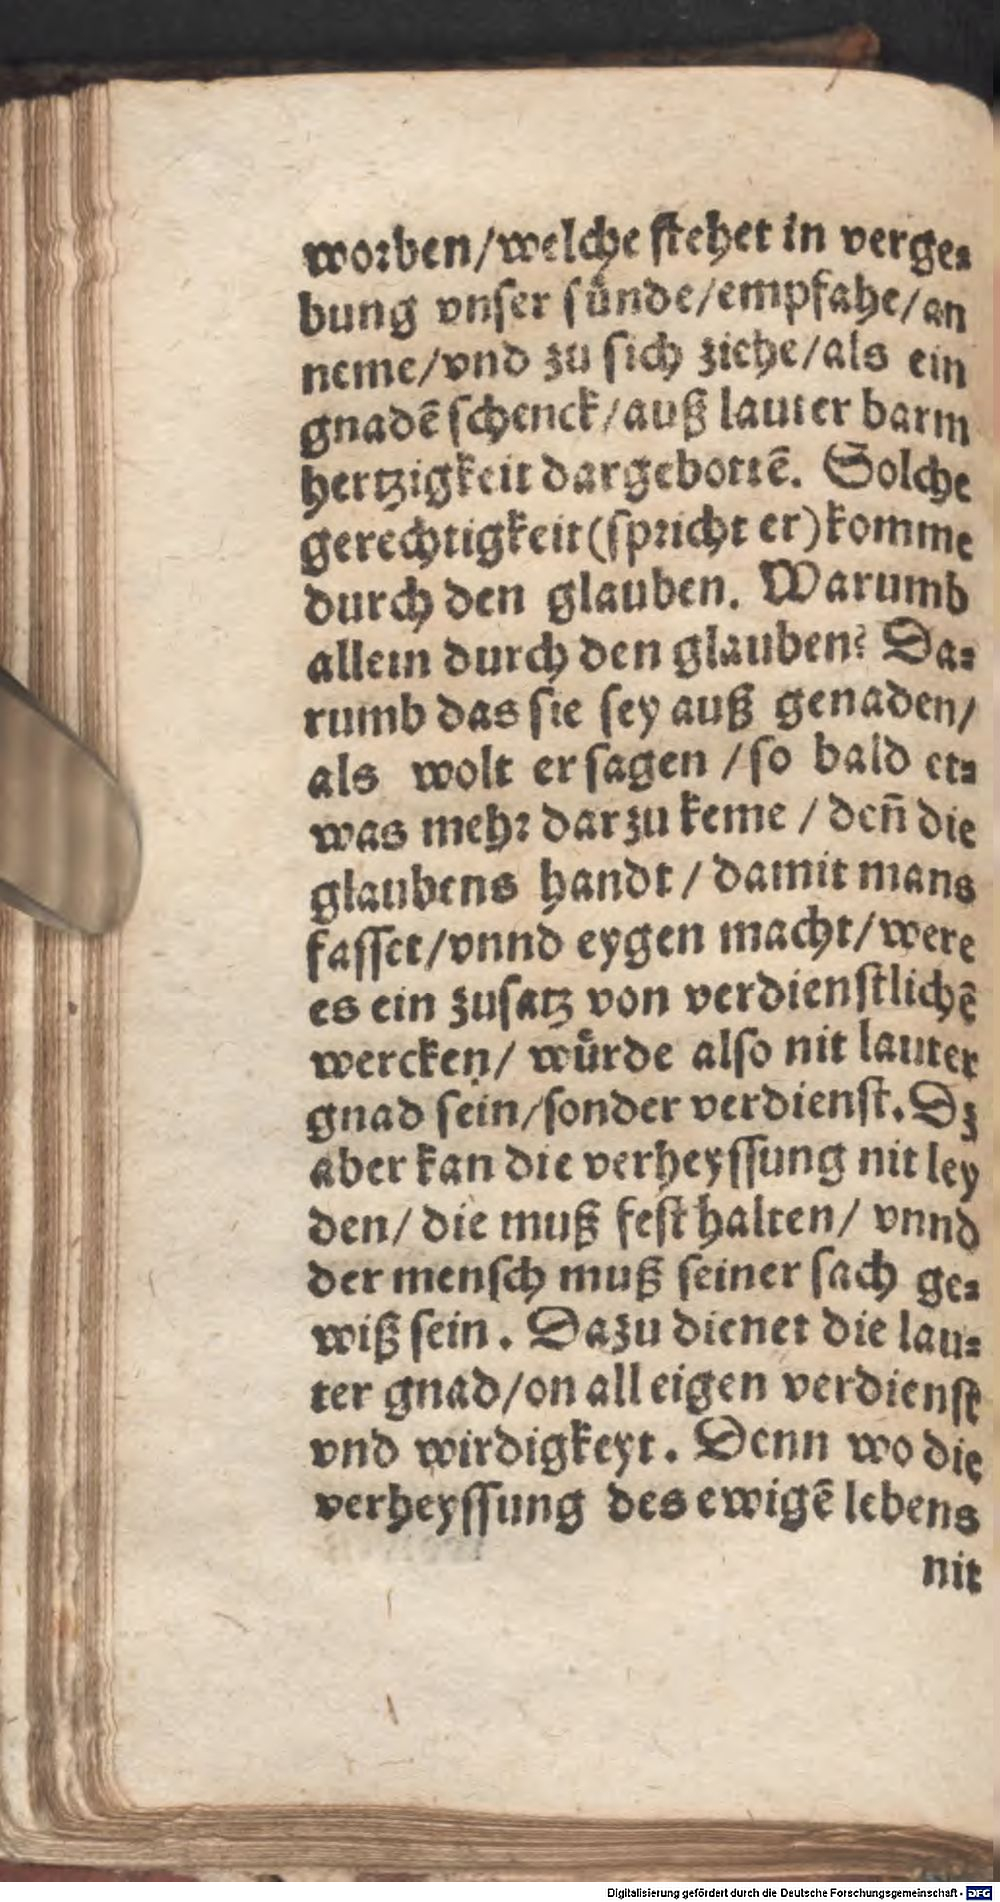 worben/welche stehet in verge-
bung vnser sünde/empfahe/an
neme/vnd zu sich ziehe/als ein
gnadẽ schenck/auß lauter barm
hertzigkeit dargebottẽ. Solche
gerechtigkeit(spricht er)komme
durch den glauben. Warumb
allein durch den glauben? Da-
rumb das sie sey auß genaden/
als wolt er sagen /so bald et-
was mehr darzu keme / deñ die
glaubens handt / damit mans
fasset/vnnd eygen macht/were
es ein zusatz von verdienstlichẽ
wercken/ würde also nit lauter
gnad sein/sonder verdienst. Dz
aber kan die verheyssung nit ley
den/ die muß fest halten/ vnnd
der mensch muß seiner sach ge-
wiß sein. Dazu dienet die lau-
ter gnad/on all eigen verdienst
vnd wirdigkeyt. Denn wo die
verheyssung des ewigẽ lebens
nit
Digitalisierung gefördert durch die Deutsche Forschungsgemeinschaft - DFG